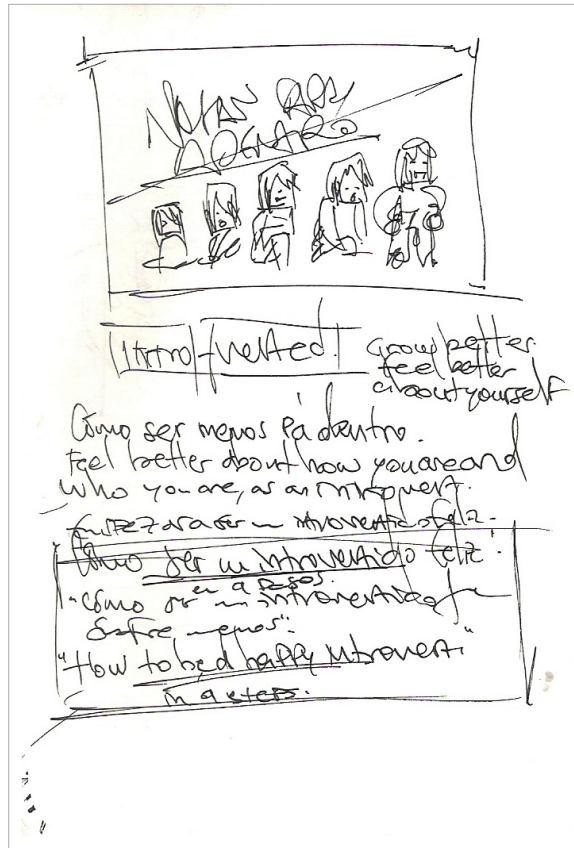 Intro-verted!
Grow better
feel better
about yourself
Cómo ser menos pa' dentro.
Feel better about how you are and
who you are, as an introvert.
a ser un introvertido feliz.
Cómo ser un introvertido feliz.
en 9 pasos.
"Cómo ser un introvertido
sufre menos".
"How to be a happy introvert"
in 9 steps.